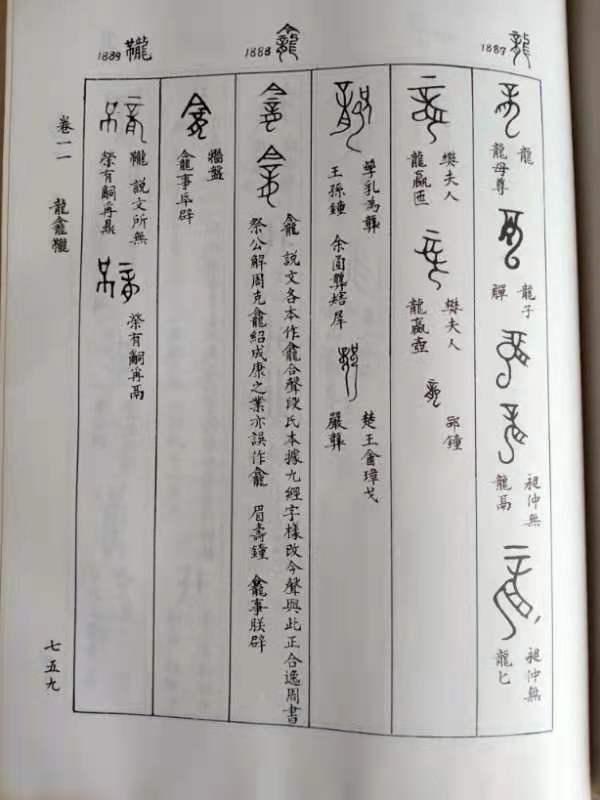 1887 龍
龍
龍母尊
龍子
觶
昶仲無
龍鬲
昶仲無
龍匕
樊夫人
龍嬴匜
樊夫人
龍嬴壺
郘鐘
孳乳為龏
王孫鐘 余𢈪龏㝬屖
楚王酓璋戈
嚴龏
1888 龕
龕 說文各本作龕合聲段氏本據九經字樣改今聲與此正合逸周書
祭公解周克龕紹成康之業亦誤作龕 眉壽鐘 龕事朕辟
牆盤
龕事厥辟
1889
說文所無
榮有嗣再鼎
榮有嗣再鬲
卷一一 龍龕
七五九